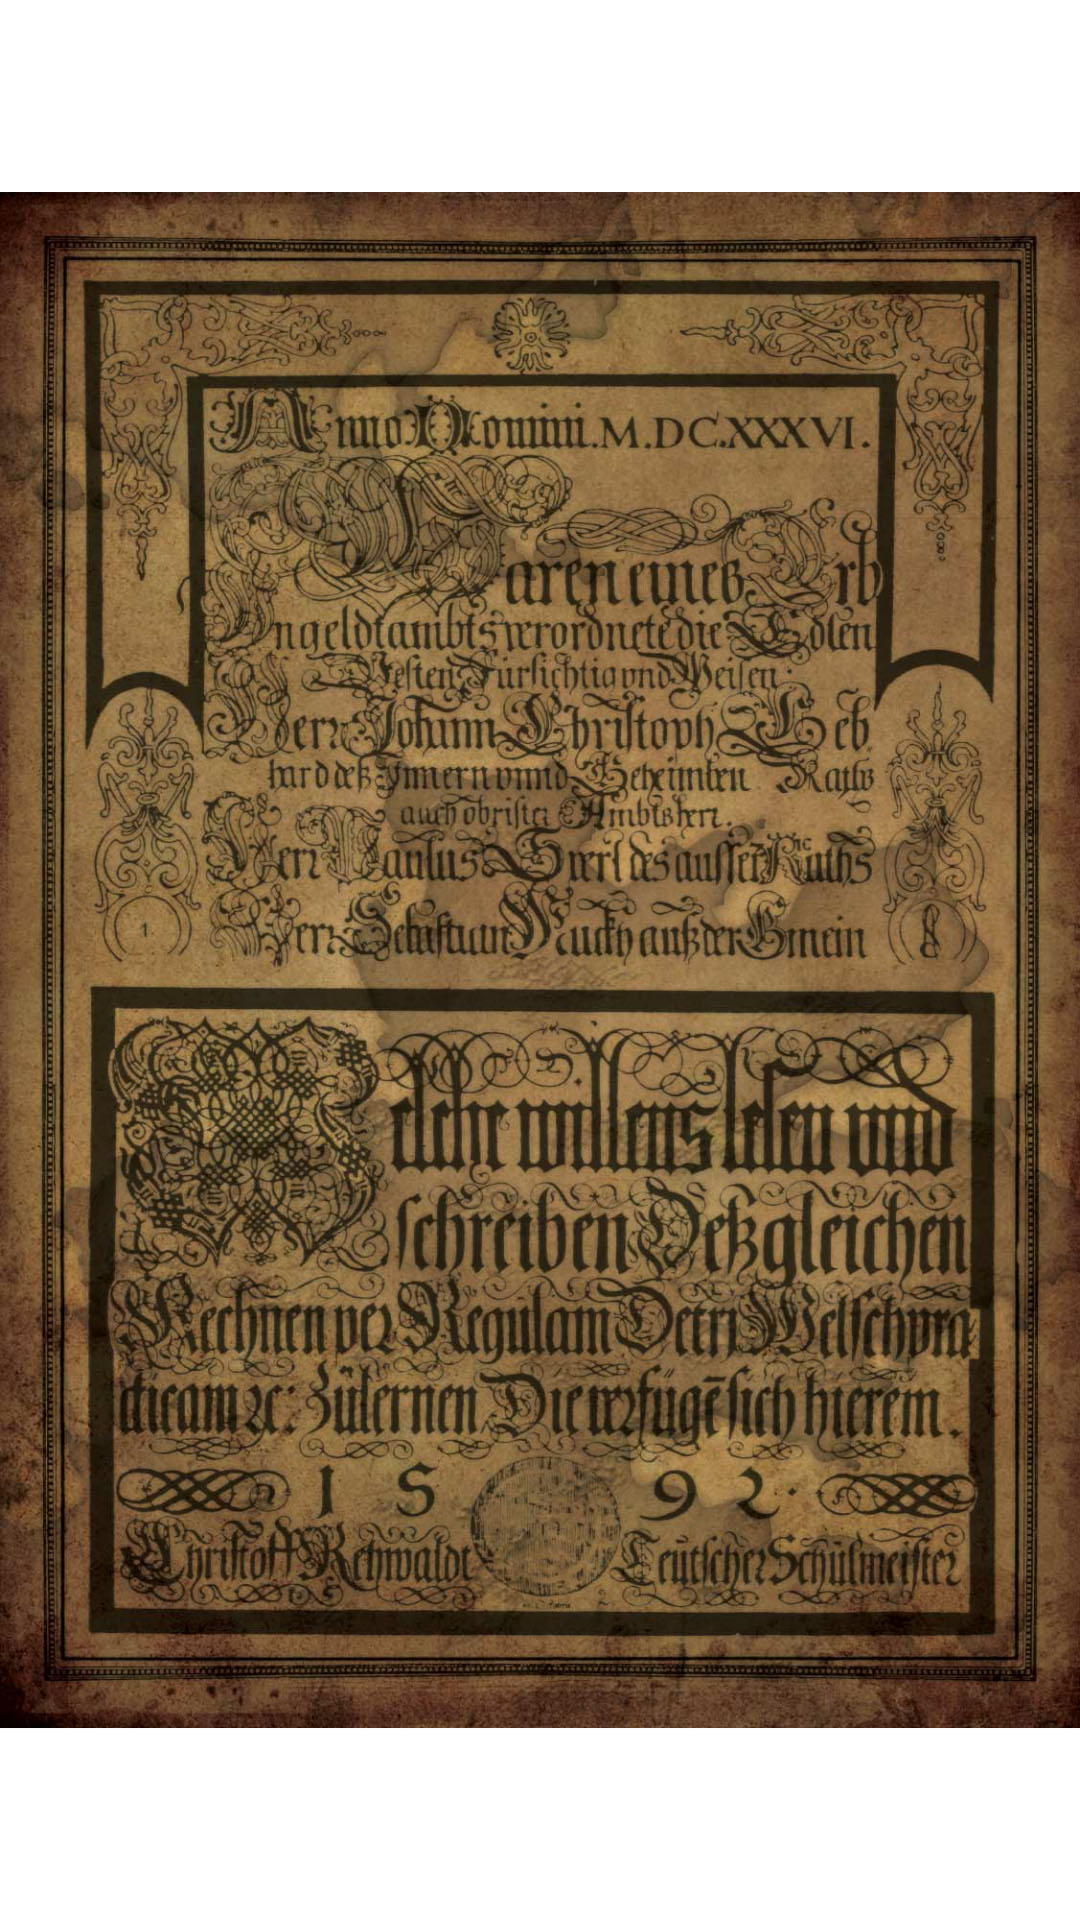 Anno Domini. M.DC.XXXVI.
Waren eines Erb
Ungeldtambts verordnete die Edlen
Vesten Fürsichtig vnd Weisen
Herr Johann Christoph Geb
hard deß Innern vnnd Geheimben Raths
auch obrister Ambtsherr.
Herr Paulus des ausser Raths
Herr Sebastian auß der Gmein
1.
Welche willens lesen vnnd
schreiben Deßgleichen
Rechnen per Regulam Detri Welsch pra
cticam ꝛc: Zülernen Die verfügē sich hierein.
1592.
Christoff Rehwaldt Teutscher Schülmeister
2